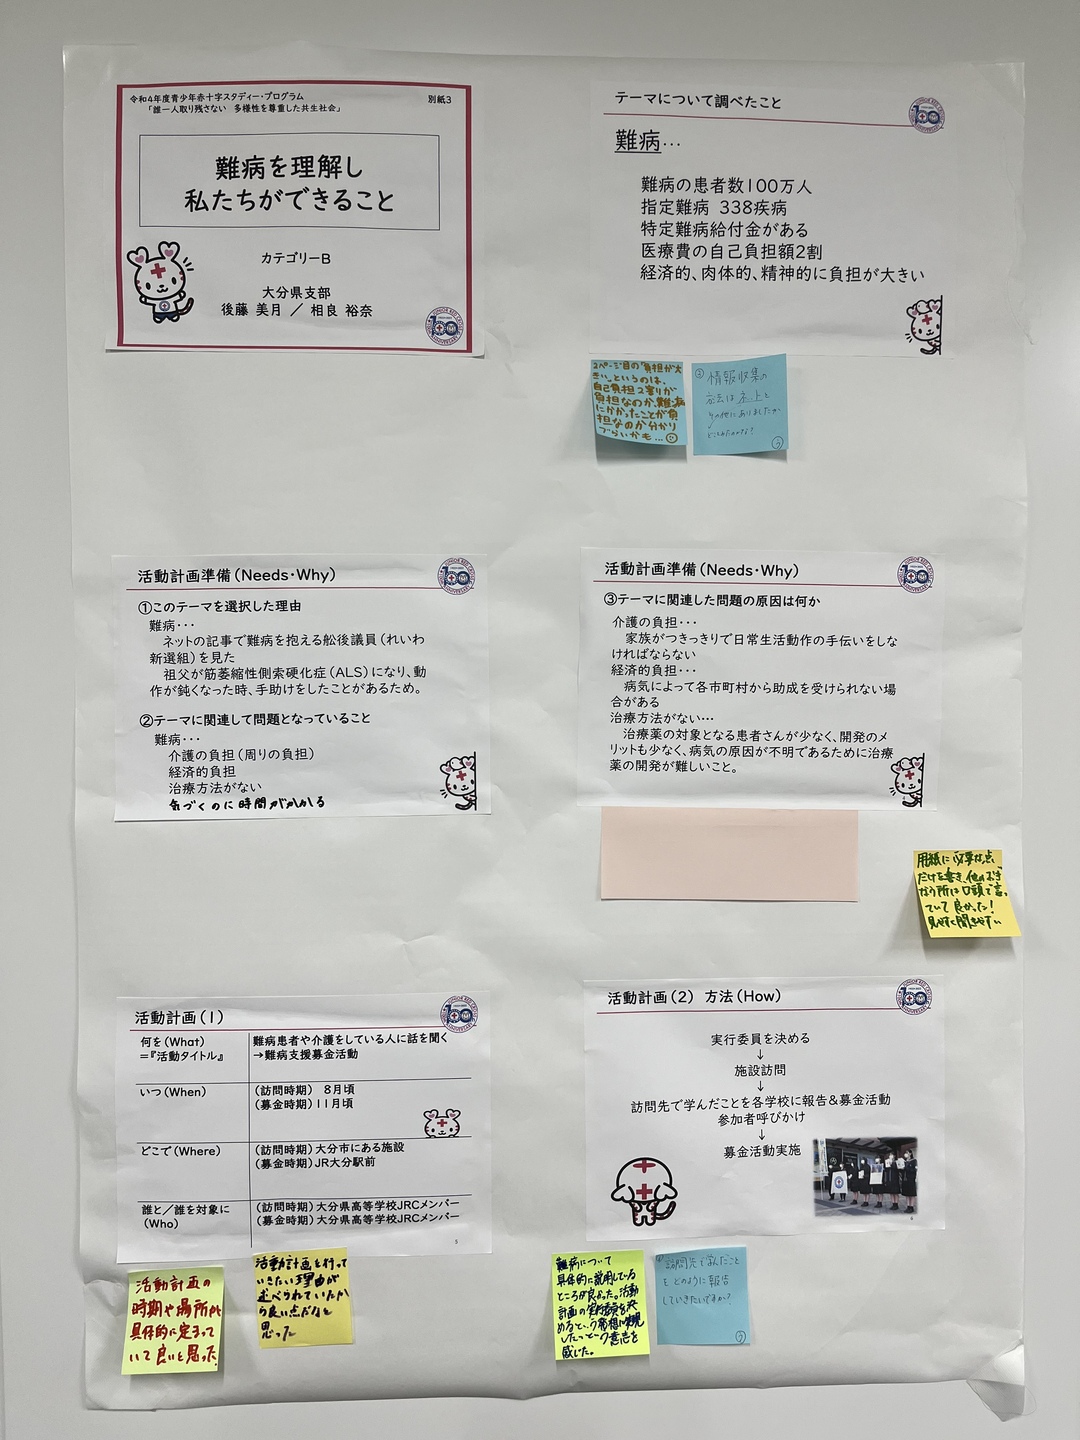 令和4年度青少年赤十字スタディー・プログラム
「誰一人取り残さない 多様性を尊重した共生社会」
別紙3
難病を理解し
私たちができること
カテゴリーB
大分県支部
後藤 美月 ／ 相良 裕奈
テーマについて調べたこと
難病…
難病の患者数100万人
指定難病 338疾病
特定難病給付金がある
医療費の自己負担額2割
経済的、肉体的、精神的に負担が大きい
2ページ目の「負担が大
きい」というのは、
自己負担2割りが
負担なのか、難病
にかかったことが負
担なのか分かり
づらいかも…
情報収集の
方法はネット
その他にありましたか
活動計画準備(Needs・Why)
①このテーマを選択した理由
難病・・・
ネットの記事で難病を抱える舩後議員（れいわ
新選組）を見た
祖父が筋萎縮性側索硬化症（ALS）になり、動
作が鈍くなった時、手助けをしたことがあるため。
②テーマに関連して問題となっていること
難病・・・
介護の負担（周りの負担）
経済的負担
治療方法がない
気づくのに時間がかかる
活動計画準備(Needs・Why)
③テーマに関連した問題の原因は何か
介護の負担・・・
家族がつきっきりで日常生活動作の手伝いをしな
ければならない
経済的負担・・・
病気によって各市町村から助成を受けられない場
合がある
治療方法がない…
治療薬の対象となる患者さんが少なく、開発のメ
リットも少なく、病気の原因が不明であるために治療
薬の開発が難しいこと。
用紙に必要な点
だけを書き、他のおぎ
なう所は口頭で言っ
ていて良かった！
見やすく聞きやすい
活動計画(1)
何を(What)
=『活動タイトル』
難病患者や介護をしている人に話を聞く
→難病支援募金活動
いつ(When)
(訪問時期) 8月頃
(募金時期)11月頃
どこで(Where)
(訪問時期)大分市にある施設
(募金時期)JR大分駅前
誰と／誰を対象に
(Who)
(訪問時期)大分県高等学校JRCメンバー
(募金時期)大分県高等学校JRCメンバー
5
活動計画(2) 方法(How)
実行委員を決める
↓
施設訪問
↓
訪問先で学んだことを各学校に報告＆募金活動
参加者呼びかけ
↓
募金活動実施
6
活動計画の
時期や場所が
具体的に定まって
いて良いと思った
活動計画を行って
いきたい理由が
述べられていたか
ら良い点だなと
思った
難病について
具体的に説明している
ところが良かった。活動
計画の実行委員を決
めるという発想に実現
したいという意志を
感じた。
訪問先で学んだこと
を どのように報告
していきたいですか？